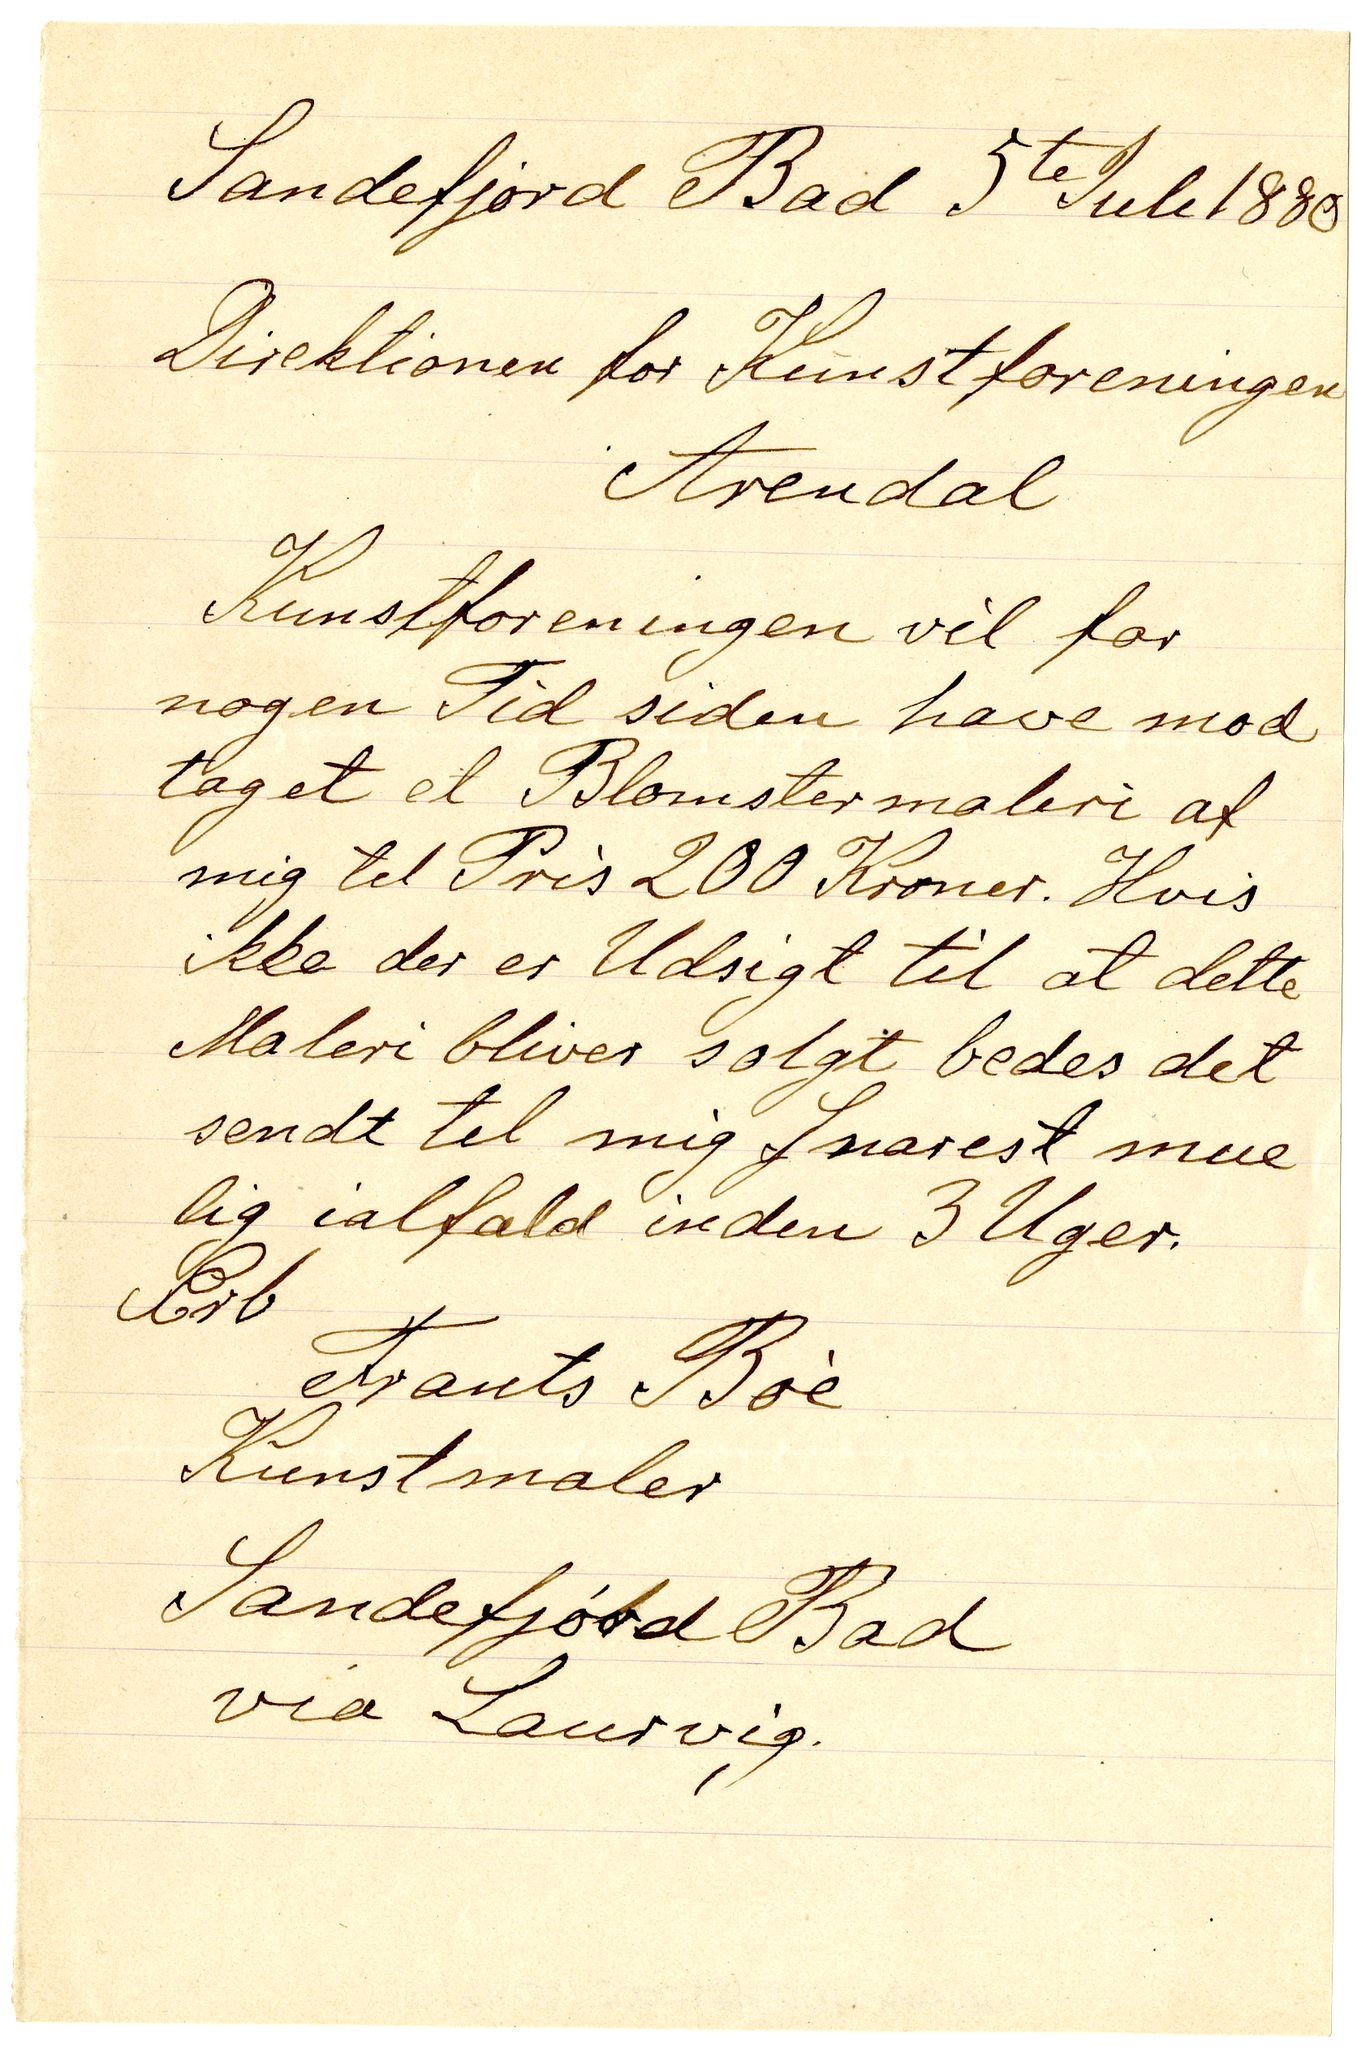 Sandefjord Bad 5te Juli 1880
Direktionen for Kunstforeningen
Arendal
Kunstforeningen vil for
nogen Tid siden have mod
taget et Blomstermaleri af
mig til Pris 200 Kroner. Hvis
ikke der er Udsigt til at dette
Maleri bliver solgt bedes det
sendt til mig snarest mue
lig ialfald inden 3 Uger.
Erb
Frants Bøe
Kunstmaler
Sandefjord Bad
via Laurvig.